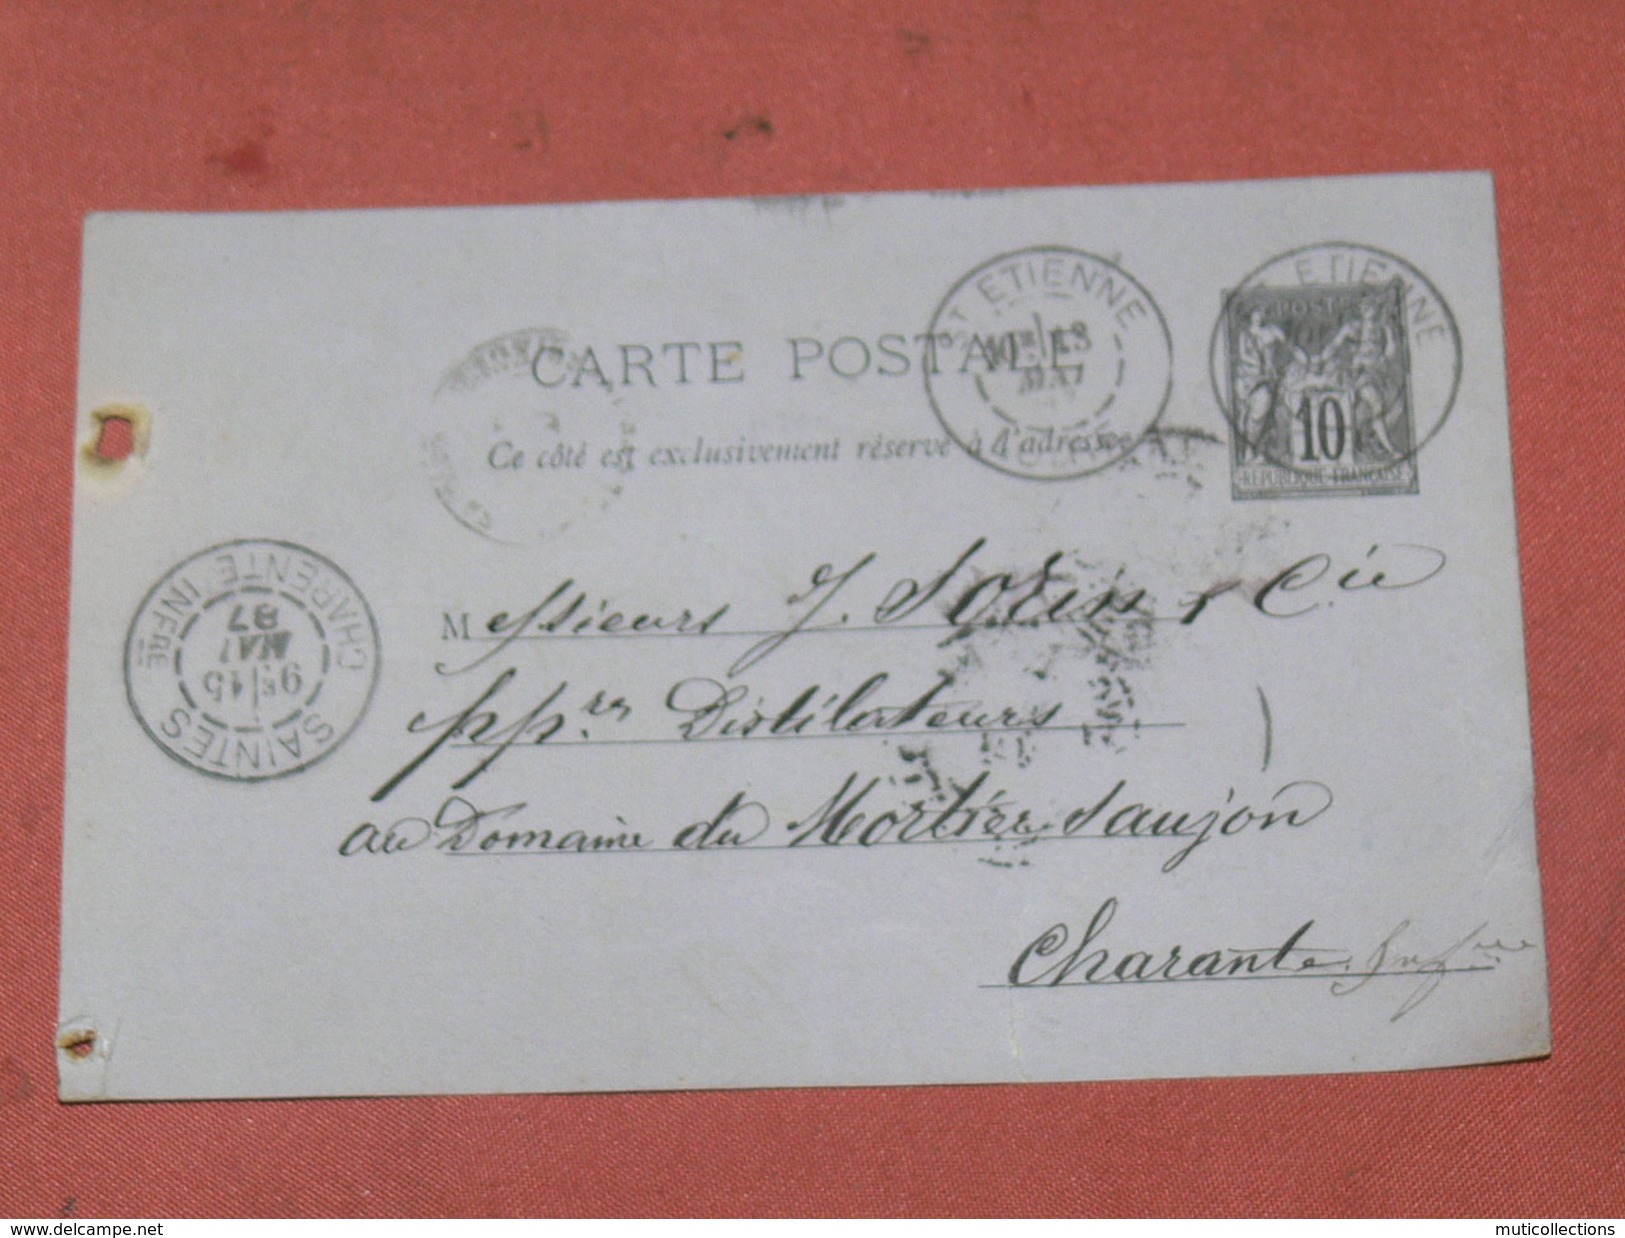 CARTE POSTALE
Ce côté est exclusivement réservé à l'adresse
St ETIENNE
18
MAI
ETIENNE
POSTES
10
REPUBLIQUE FRANÇAISE
SAINTES
9E 15
MAI
87
CHARENTE INFRE
Messieurs J. Sorin & Cie
pprs Distilateurs
au Domaine du Mortier Saujon
Charante Infre
www.delcampe.net
muticollections